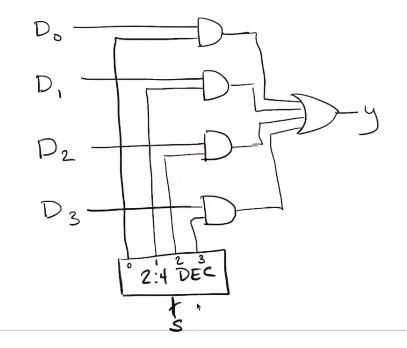 D0
D1
D2
y
D3
0 1 2 3
2:4 DEC
S